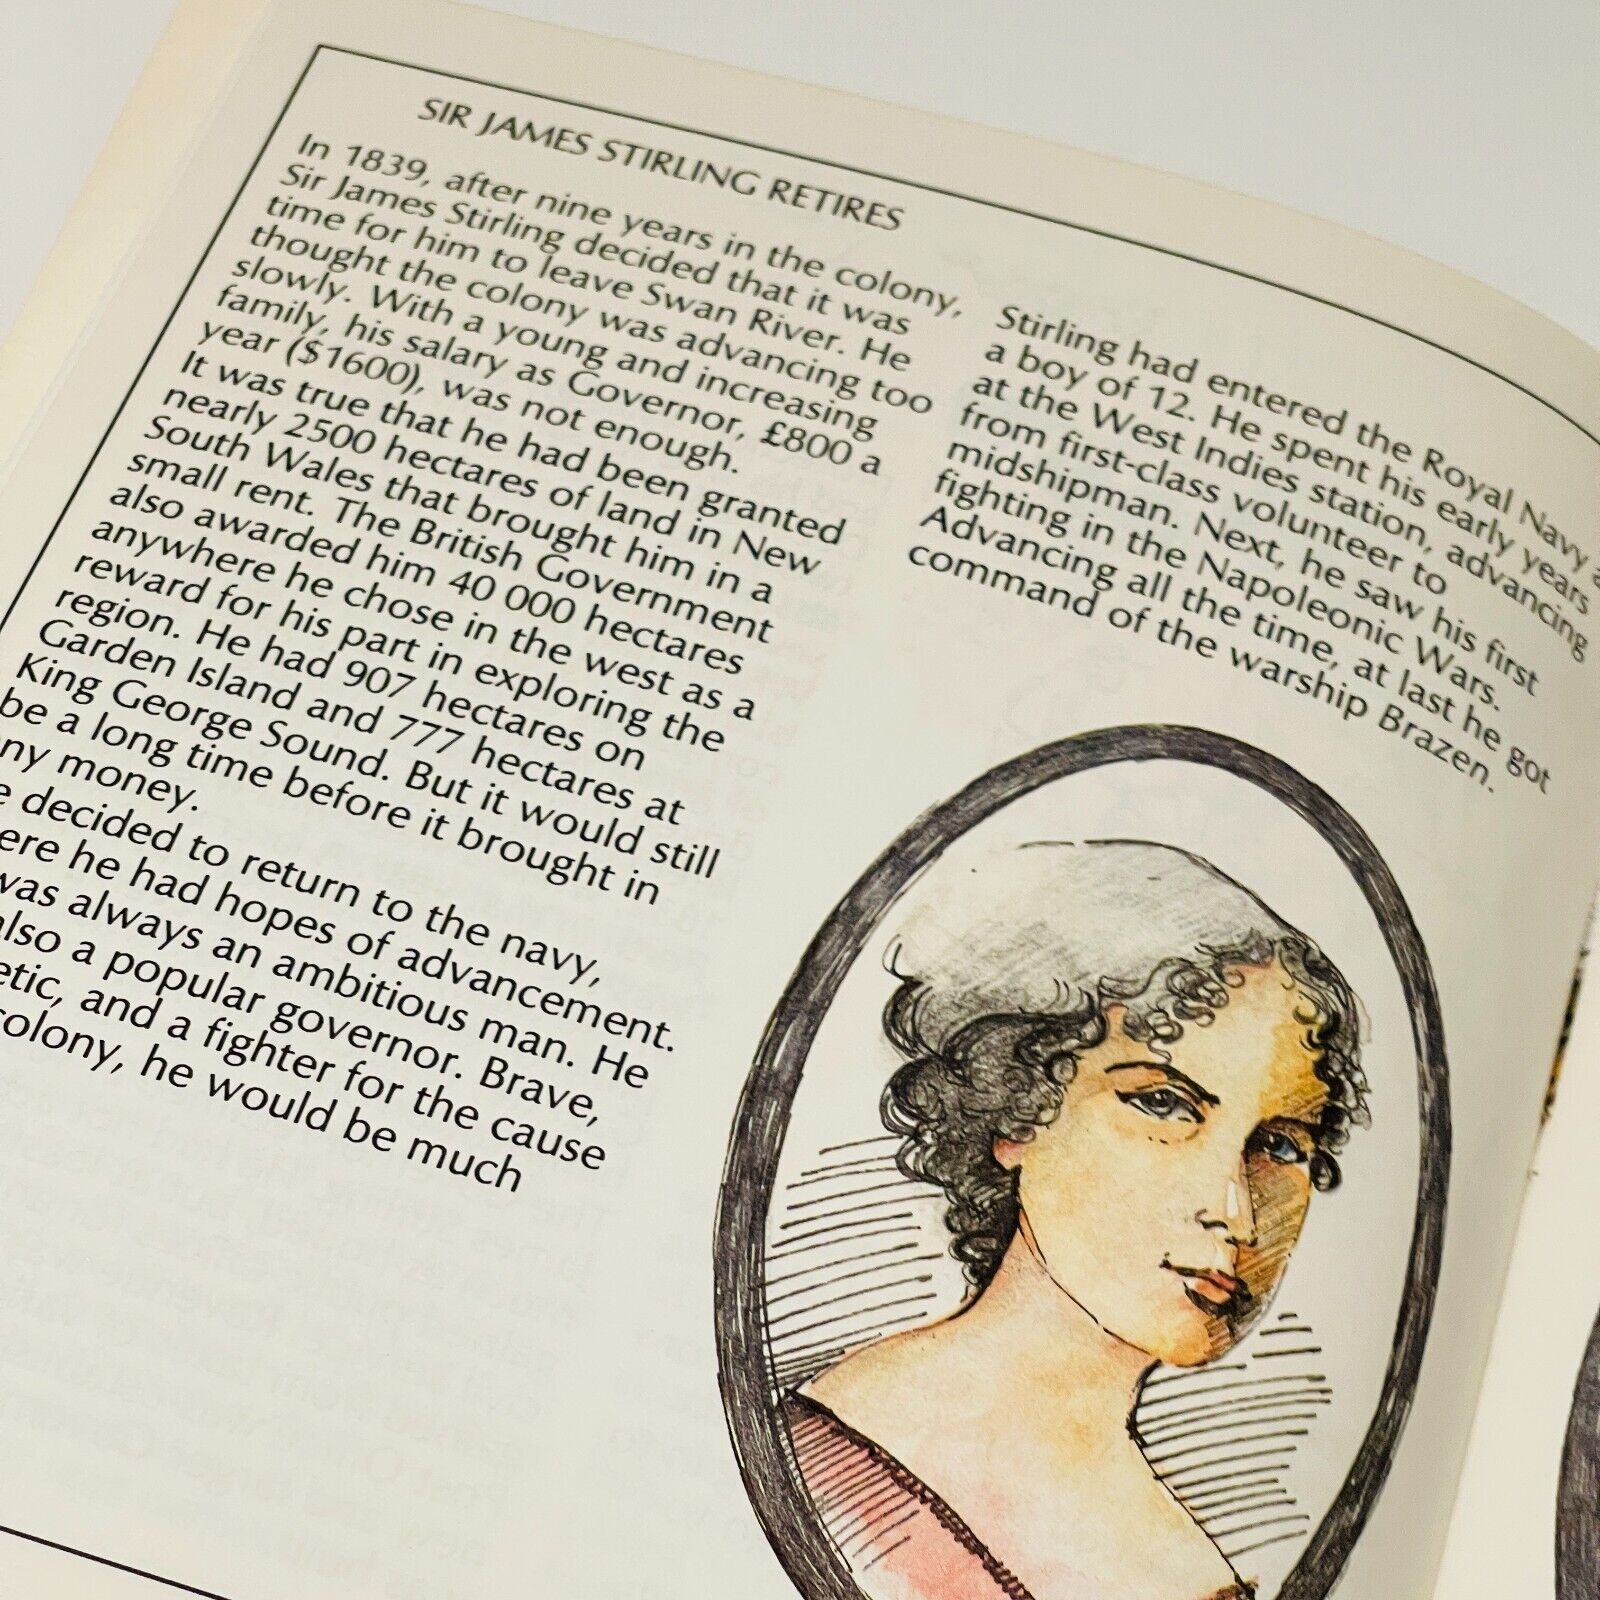 SIR JAMES STIRLING RETIRES
In 1839, after nine years in the colony,
Sir James Stirling decided that it was
time for him to leave Swan River. He
thought the colony was advancing too
slowly. With a young and increasing
family, his salary as Governor, £800 a
year ($1600), was not enough.
It was true that he had been granted
nearly 2500 hectares of land in New
South Wales that brought him in a
small rent. The British Government
also awarded him 40 000 hectares
anywhere he chose in the west as a
reward for his part in exploring the
region. He had 907 hectares on
Garden Island and 777 hectares at
King George Sound. But it would still
be a long time before it brought in
ny money.
decided to return to the navy,
ere he had hopes of advancement.
was always an ambitious man. He
also a popular governor. Brave,
etic, and a fighter for the cause
colony, he would be much
Stirling had entered the Royal Navy a
a boy of 12. He spent his early years
at the West Indies station, advancing
from first-class volunteer to
midshipman. Next, he saw his first
fighting in the Napoleonic Wars.
Advancing all the time, at last he got
command of the warship Brazen.